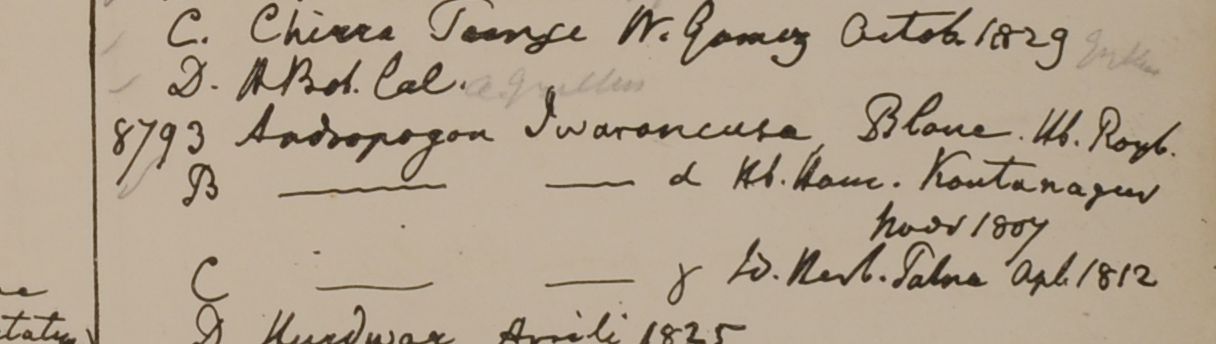 C. Chirra Toonge W. Gomez Octob. 1829
D. HBot. Cal. A. Gryllus
8793 Andropogon Iwarancusa, Blane. Hb. Roxb.
B — — d Hb. Ham. Kontanagur
Novr 1807
C — — γ Id. Herb. Patna Apl. 1812
D Hurdwar Aprili 1825